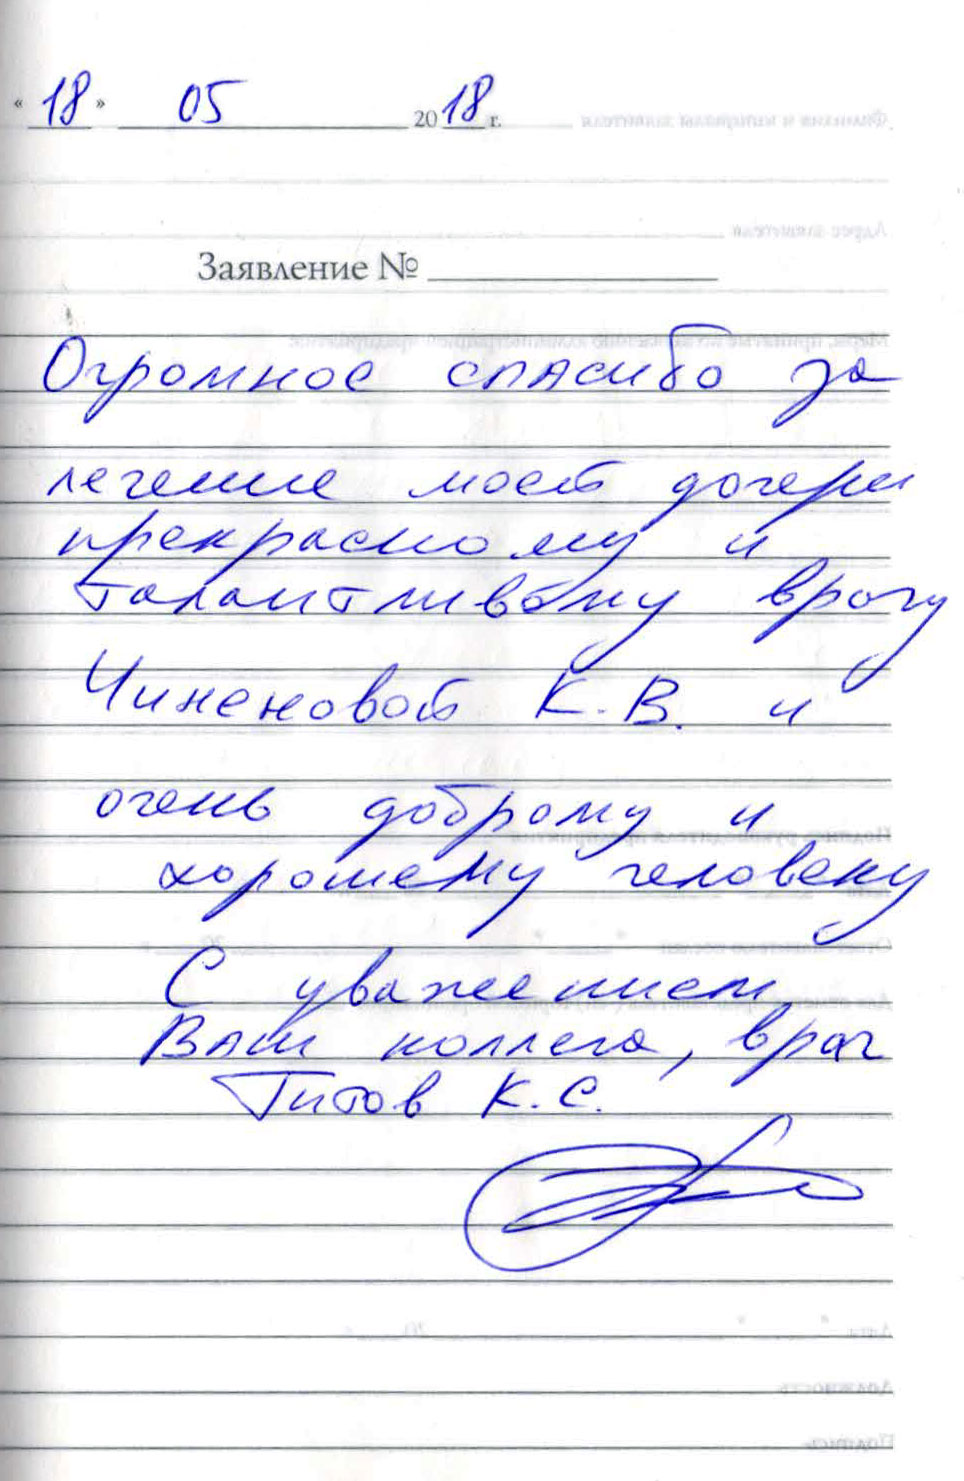 «18» 05 2018 г.
Заявление №
Огромное спасибо за
лечение моей дочери
прекрасному и
талантливому врачу
Чиненовой К.В. и
очень доброму и
хорошему человеку
С уважением
Ваш коллега, врач
Титов К.С.